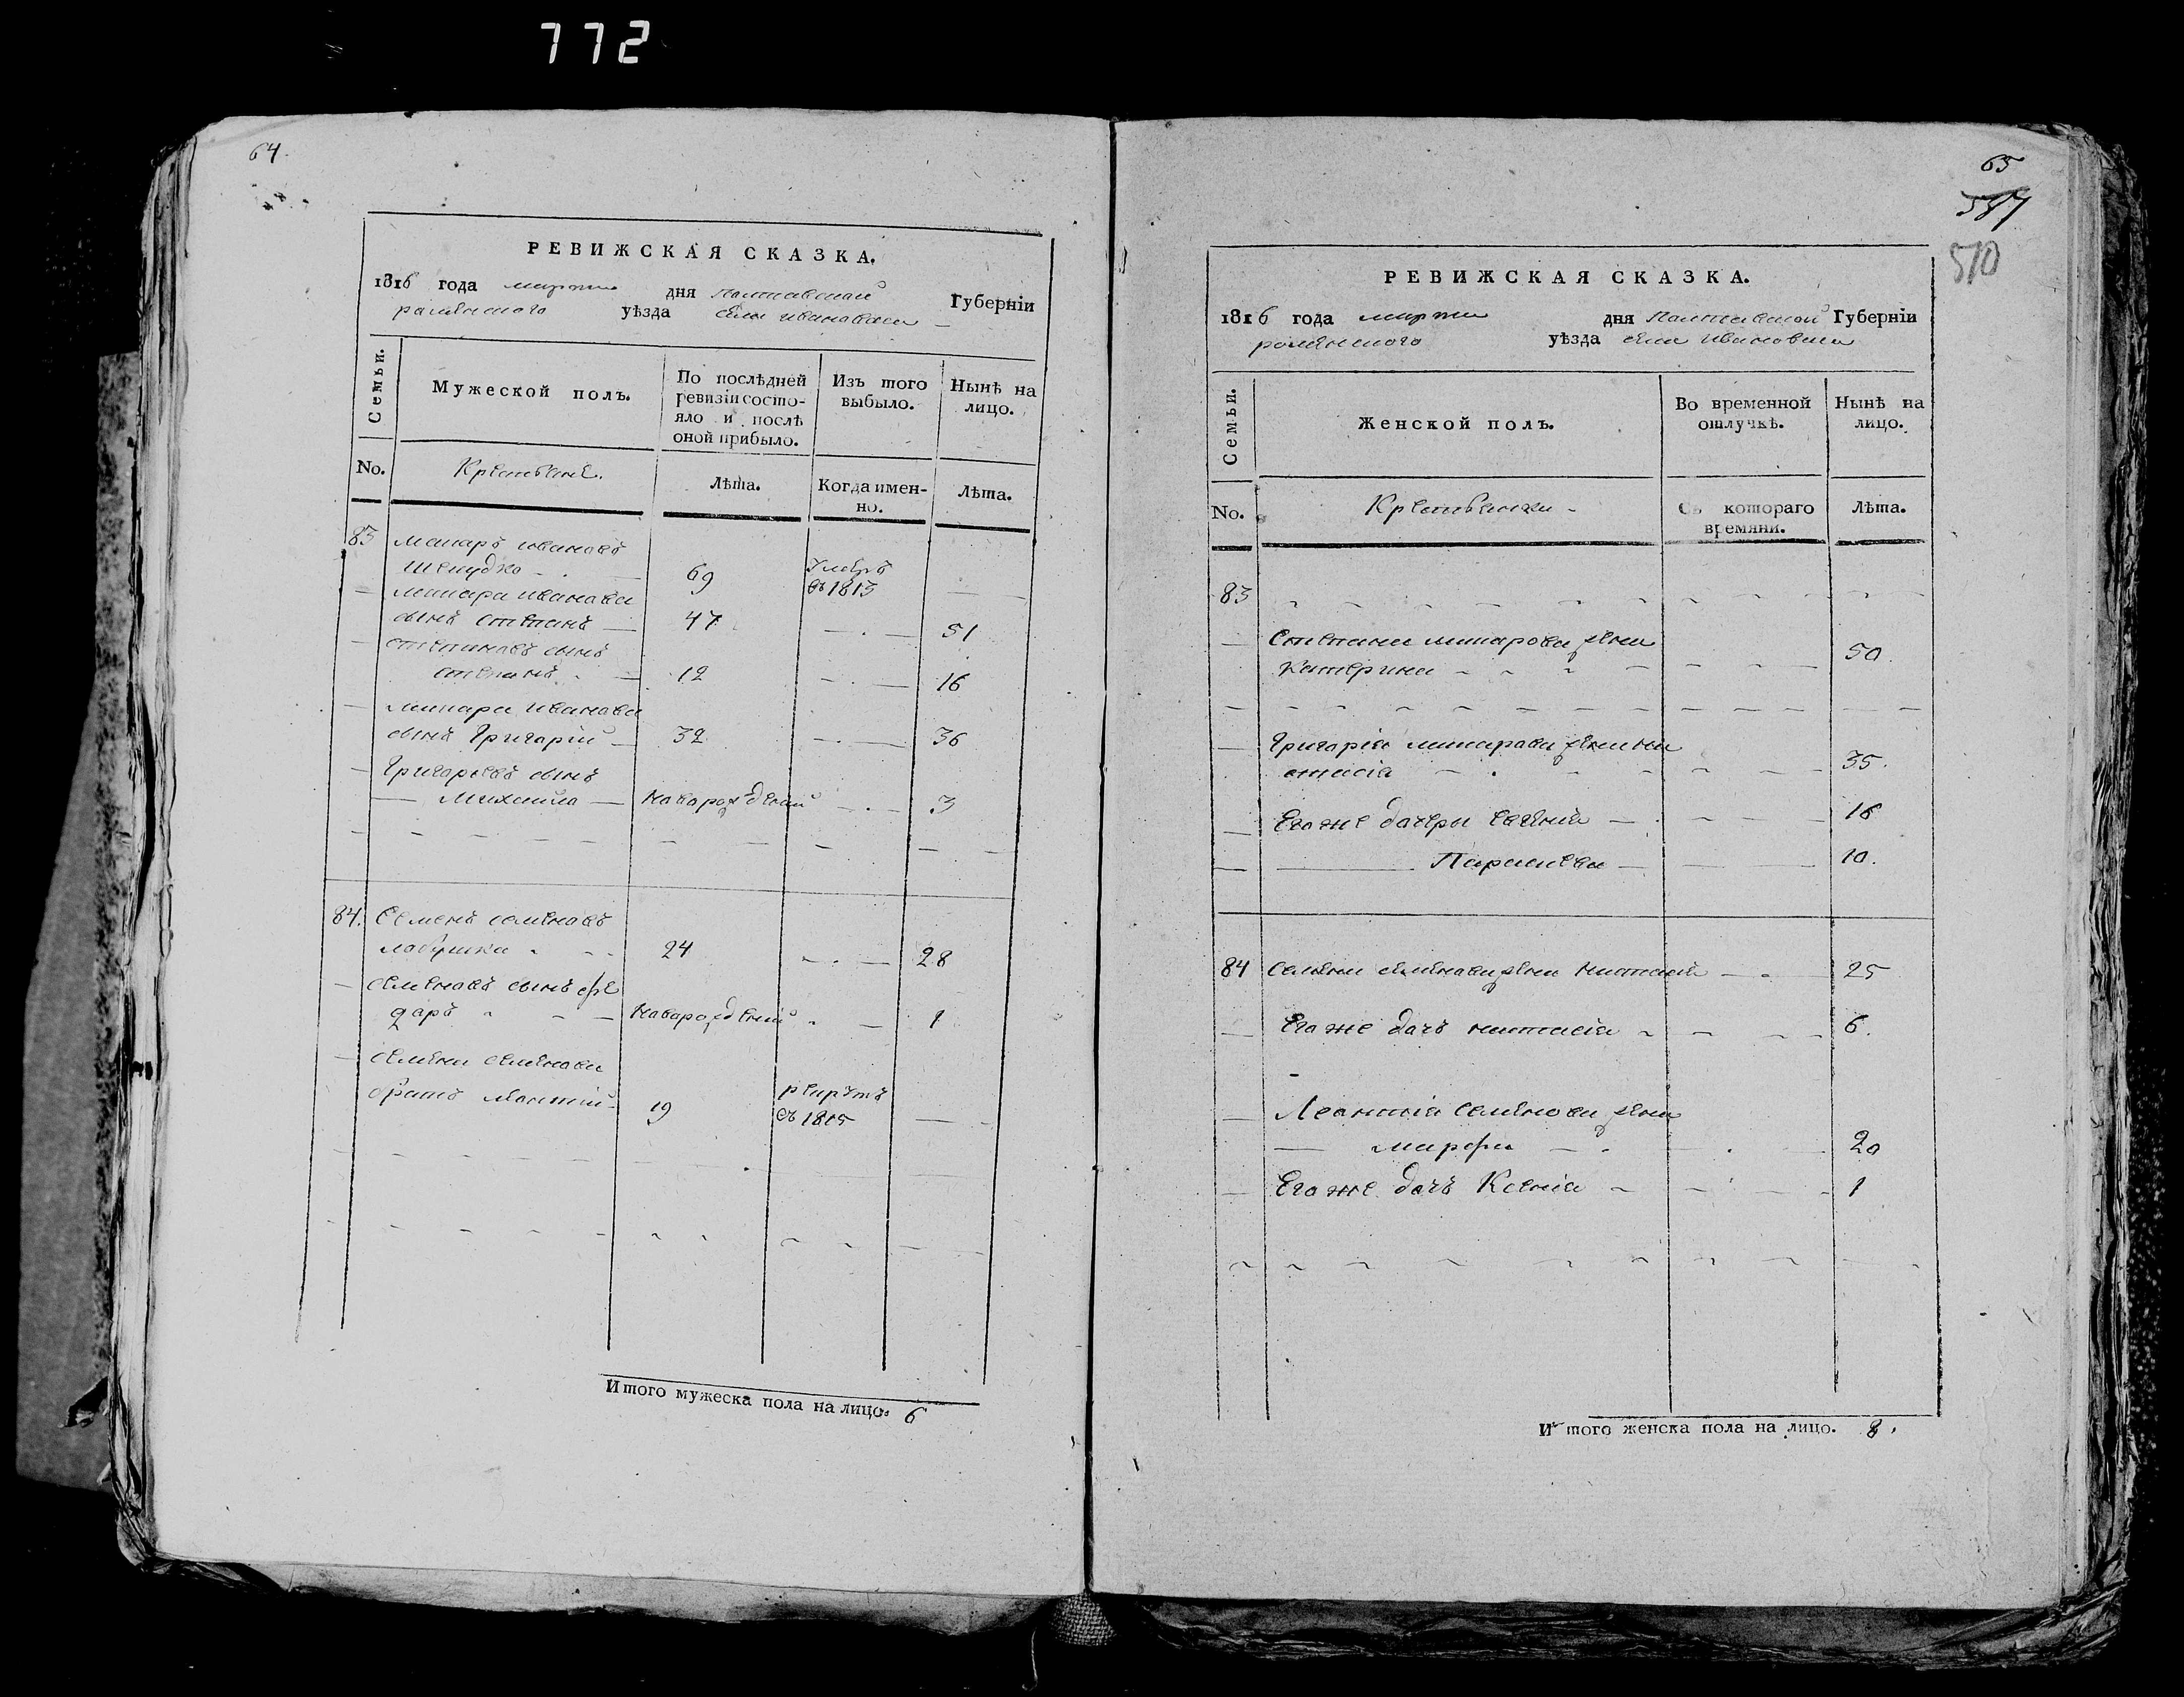 772
64.
РЕВИЖСКАЯ СКАЗКА.
1816 года марта дня Полтавской Губерніи
роменского уѣзда села Ивановки
Семьи.
Мужеской полъ.
По послѣдней
ревизіи состо-
яло и послѣ
оной прибыло.
Изъ того
выбыло.
Нынѣ на
лицо.
No.
Крестьяне.
Лѣта.
Когда имен-
но.
Лѣта.
83 макаръ ивановъ
69 Умеръ
въ 1813
макара иванова
сынъ степанъ 47 51
степановъ сынъ
12 16
макара иванова
сынъ Григорій 32 36
Григорьевъ сынъ
Михайла новорожденный 3
84. Семенъ семеновъ
24 28
семеновъ сынъ фе
доръ новорожденный 1
семена семенова
братъ леонтій 19 рекрутъ
въ 1815
Итого мужеска пола на лицо. 6
65
510
РЕВИЖСКАЯ СКАЗКА.
1816 года марта дня Полтавской Губерніи
роменского уѣзда села Ивановки
Семьи.
Женской полъ.
Во временной
отлучкѣ.
Нынѣ на
лицо.
No.
Крестьянки
Съ котораго
времяни.
Лѣта.
83
Степана макарова жена
Катерина 50.
Григорія макарова жена на
стасія 35.
Его же дочери Евгенія 16
Парасковя 10.
84 семена семенова жена настасія 25
Его же дочь настасія 6.
Леонтія семенова жена
марфа 20
Его же дочь Ксенія 1
Итого женска пола на лицо. 8.